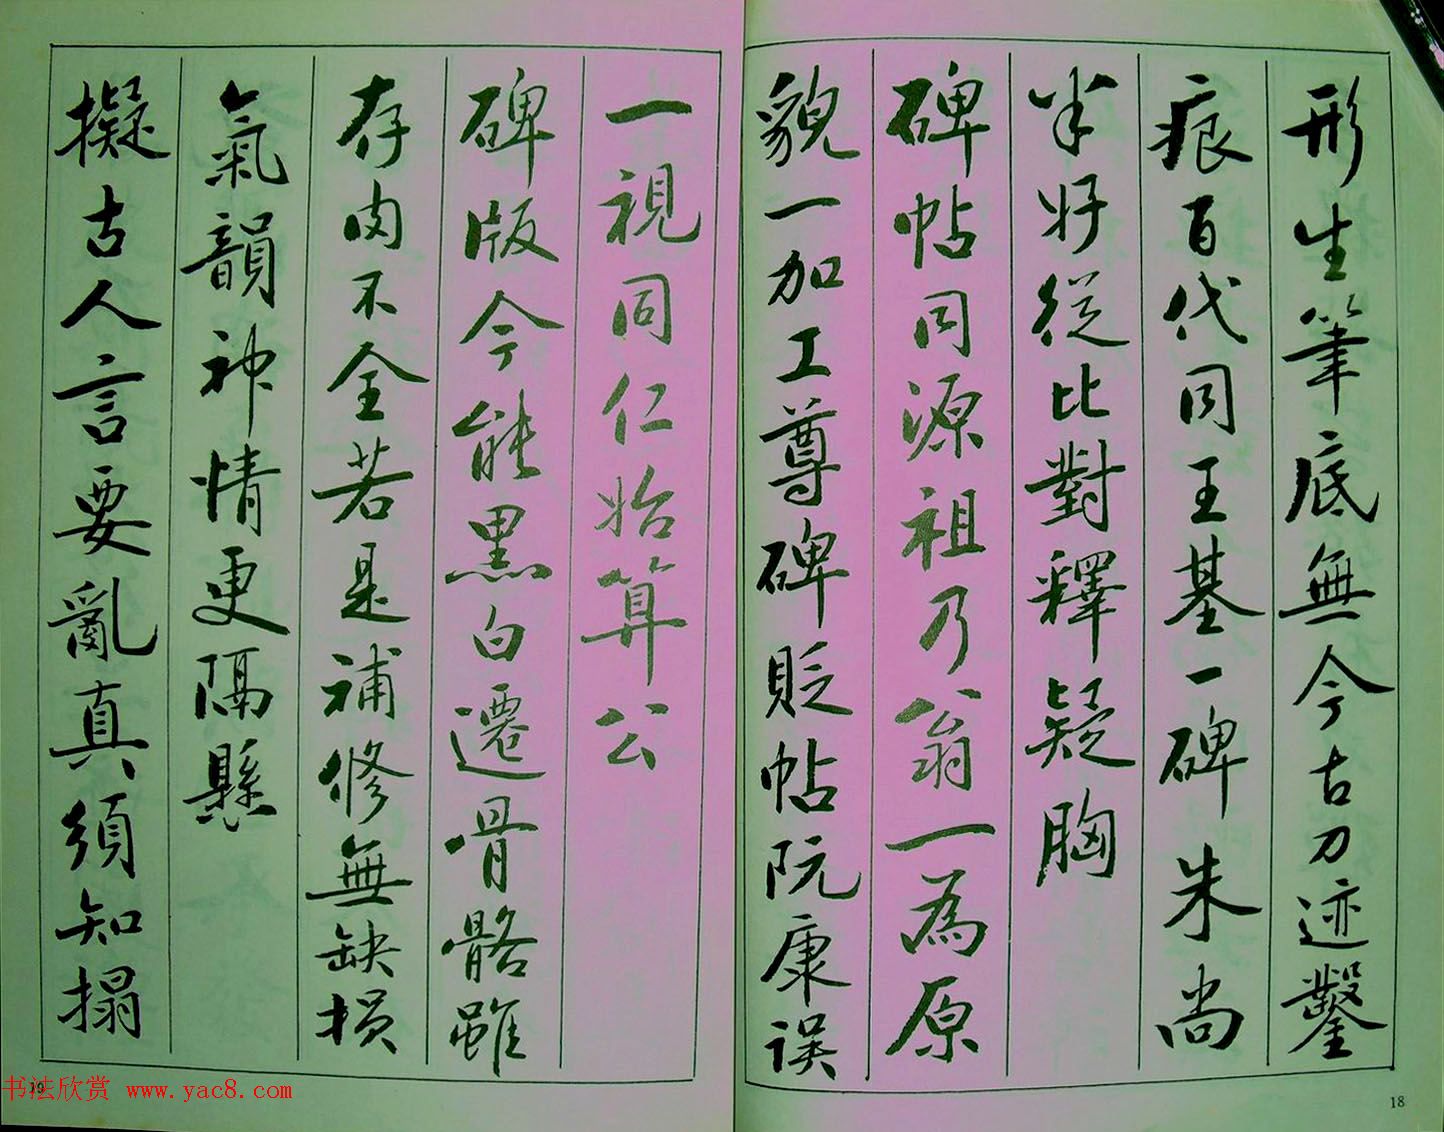 形生筆底無今古刀迹鑿
痕百代同王基一碑朱尚
半好從比對釋疑胸
碑帖同源祖乃翁一為原
貌一加工尊碑貶帖阮康误
一視同仁始算公
碑版今能黑白遷骨骼雖
存肉不全若是補修無缺损
氣韻神情更隔縣
擬古人言要亂真須知搨
18
19
书法欣赏 www.yac8.com